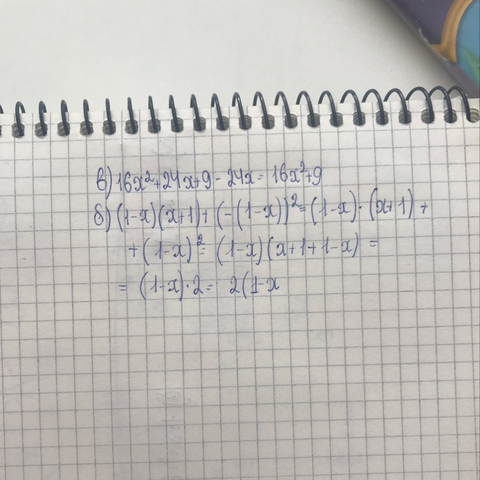 в) 16x²+24x+9-24x=16x²+9
б) (1-x)(x+1)+(-(1-x))²=(1-x)·(x+1)+
+(1-x)²=(1-x)(x+1+1-x)=
=(1-x)·2= 2(1-x